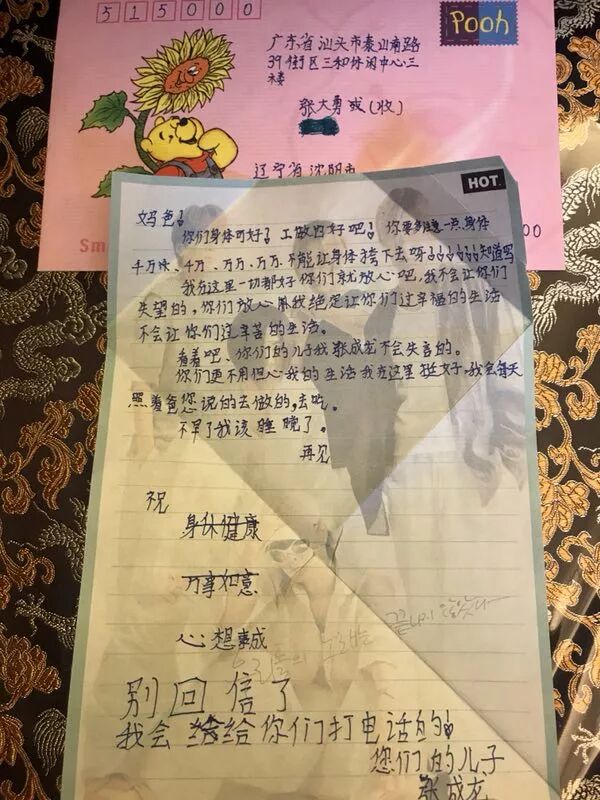 515000
Pooh
广东省汕头市泰山南路
39街区三和休闲中心三
楼
张大勇 (收)
辽宁省沈阳市
Sm
00
HOT
妈爸!
你们身体可好?工做也好吧!你要多注意一点身体
千万味、千万、万万、万万不能让身体挎下去呀!!!!!知道吗
我在这里一切都好你们就放心吧,我不会让你们
失望的,你们放心展我绝定让你们过幸福的生活
不会让你们过辛苦的生活。
看着吧、你们的儿子我张成龙不会失言的。
你们更不用但心我的生活我在这里挺好.我会每天
照着爸您说的去做的,去吃。
不早了我该睡觉了。
再见
祝
身体健康
万事如意
心想事成
우리들의 노래는 끝나지 않았다
别回信了
我会给你们打电话的!
您们的儿子
张成龙